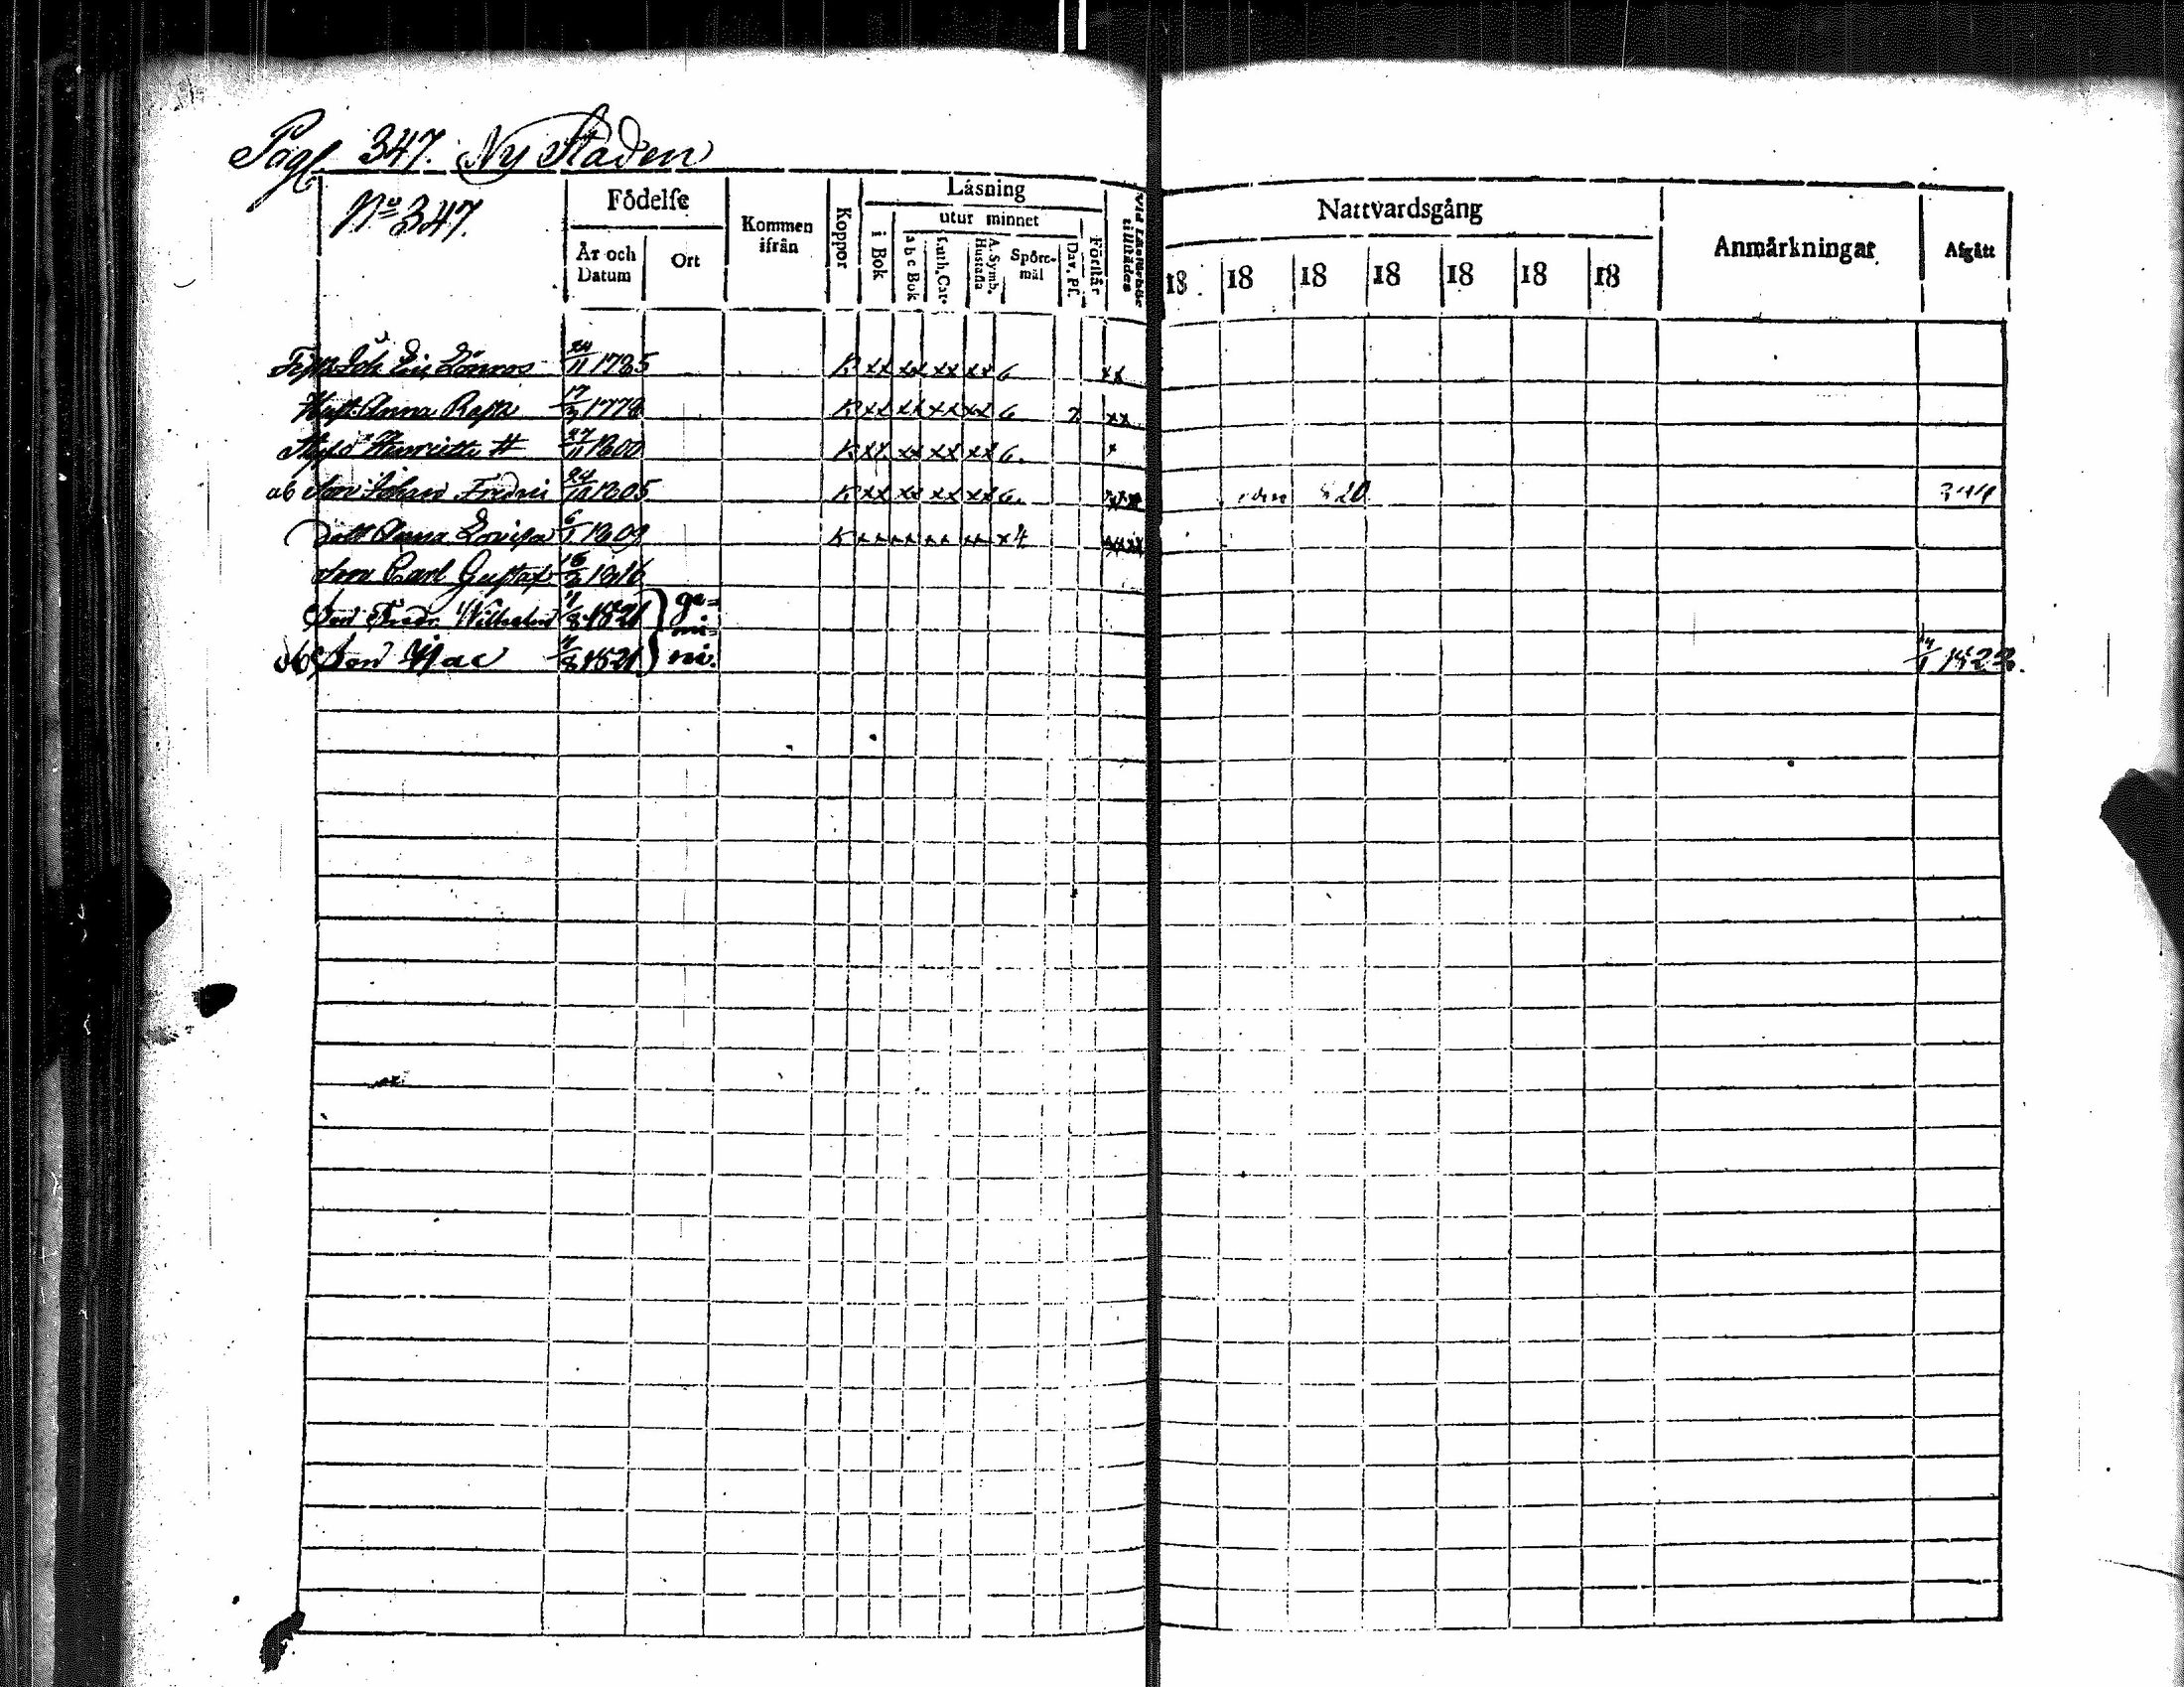 Pag. 347. Ny Staden
No 347.
Födelse
År och Datum
Ort
Kommen ifrån
Koppor
Läsning
i Bok
utur minnet
a b c Bok
Luth. Cat.
A. Symb. Hustafla
Spörsmål
Dav. Ps.
Förstår
Vid Läseförhör tillstädes
Nattvardsgång
18 18 18 18 18 18 18
Anmärkningar
Afgått
Joh Eric Lönnros 24/11 1785 K xx xx xx xx 6 xx
Hust. Anna 17/3 1778 K xx xx xx xx 6 7 xx
Henriette 27/11 1800 K xx xx xx xx 6. x
ab Son Johan Fredric 24/10 1805 K xx xx xx xx 6. xxx 820 344
Dott Anna Lovisa 6/1 1809 K xx xx xx xx x4 xxxx
Son Carl Gustaf 1816
Son Fredr. Wilhelm 4/8 1821 } ge=
mi=
ob Son Isac 4/8 1821 } ni. 1822.